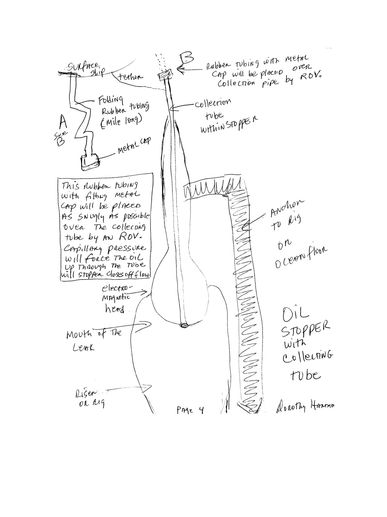 SURFACE
Ship
tether
B
Rubber tubing with metal
cap will be placed over
collection pipe by ROV.
Folding
Rubber tubing
(Mile long)
A
B
metal cap
Collection
tube
within STOPPER
This Rubber tubing
with fitting metal
cap will be placed
AS snugly AS possible
over the collecting
tube by AN ROV.
Capillary pressure
will force the oil
up through the tube
will STOPPER closes off flow
electro-
magnetic
head
Anchor
TO Rig
OR
Ocean floor
Mouth of the
Leak
OIL
STOPPER
with
Collecting
tube
Riser
OR Rig
Page 4
Dorothy